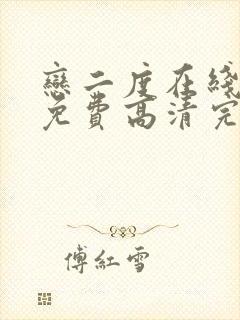 戀二度在綫
免費高清完
傅紅雪